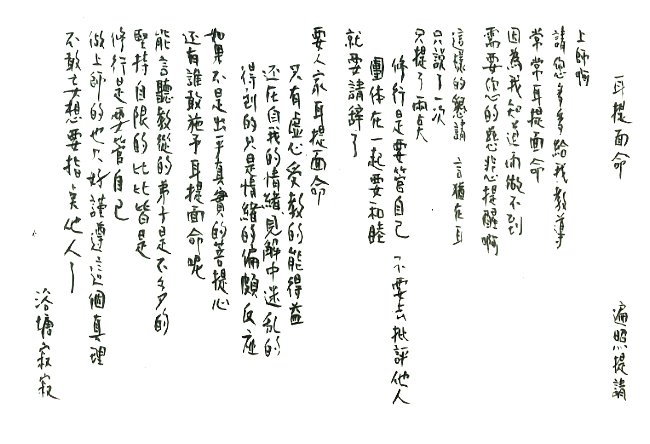 耳提面命 遍照提請
上師啊
請您多多給我教導
常常耳提面命
因為我知道而做不到
需要您的慈悲提醒啊
這樣的懇請 言猶在耳
只說了一次
只提了兩點
修行是要管自己 不要去批評他人
團体在一起要和睦
就要請辭了
要人家耳提面命
只有虛心受教的能得益
还在自我的情緒見解中迷乱的
得到的只是情緒的偏頗反应
如果不是出乎真實的菩提心
还有誰敢施予耳提面命呢
能言聽教從的弟子是不多的
堅持自限的比比皆是
修行是要管自己
做上師的也只好謹遵這個真理
不敢妄想要指点他人了
浴塘寂寂